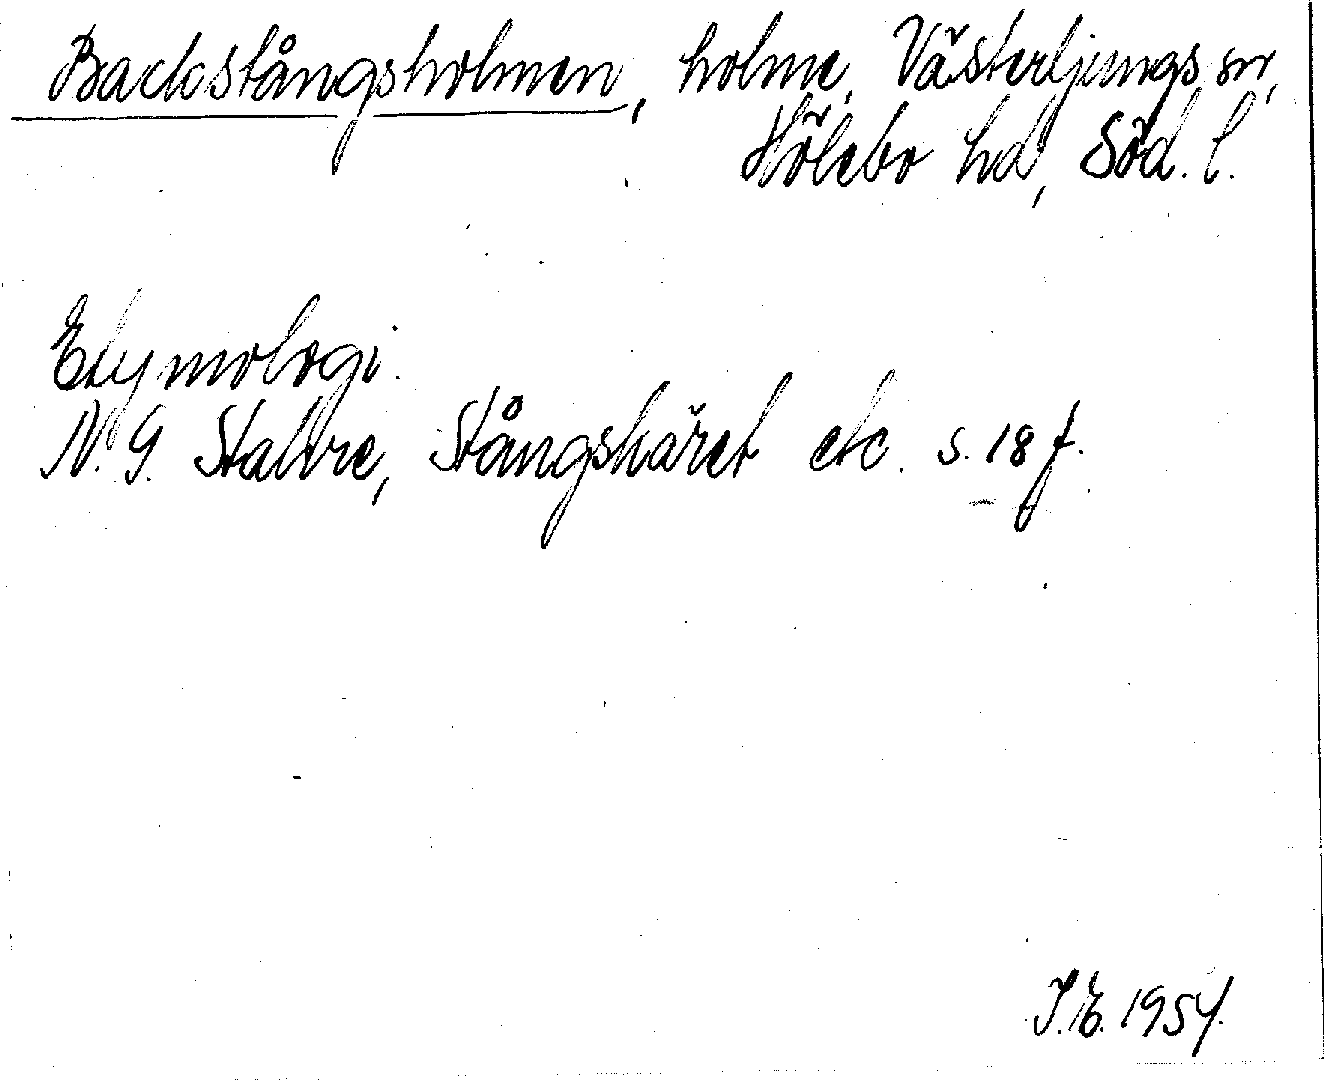 Backstångsholmen, holme, Västerljungs sn,
Hölebo hd, Söd. l.
Etymologi.
N. G. Stalbre, Stångskäret etc. s. 18 f.
I.E. 1954.